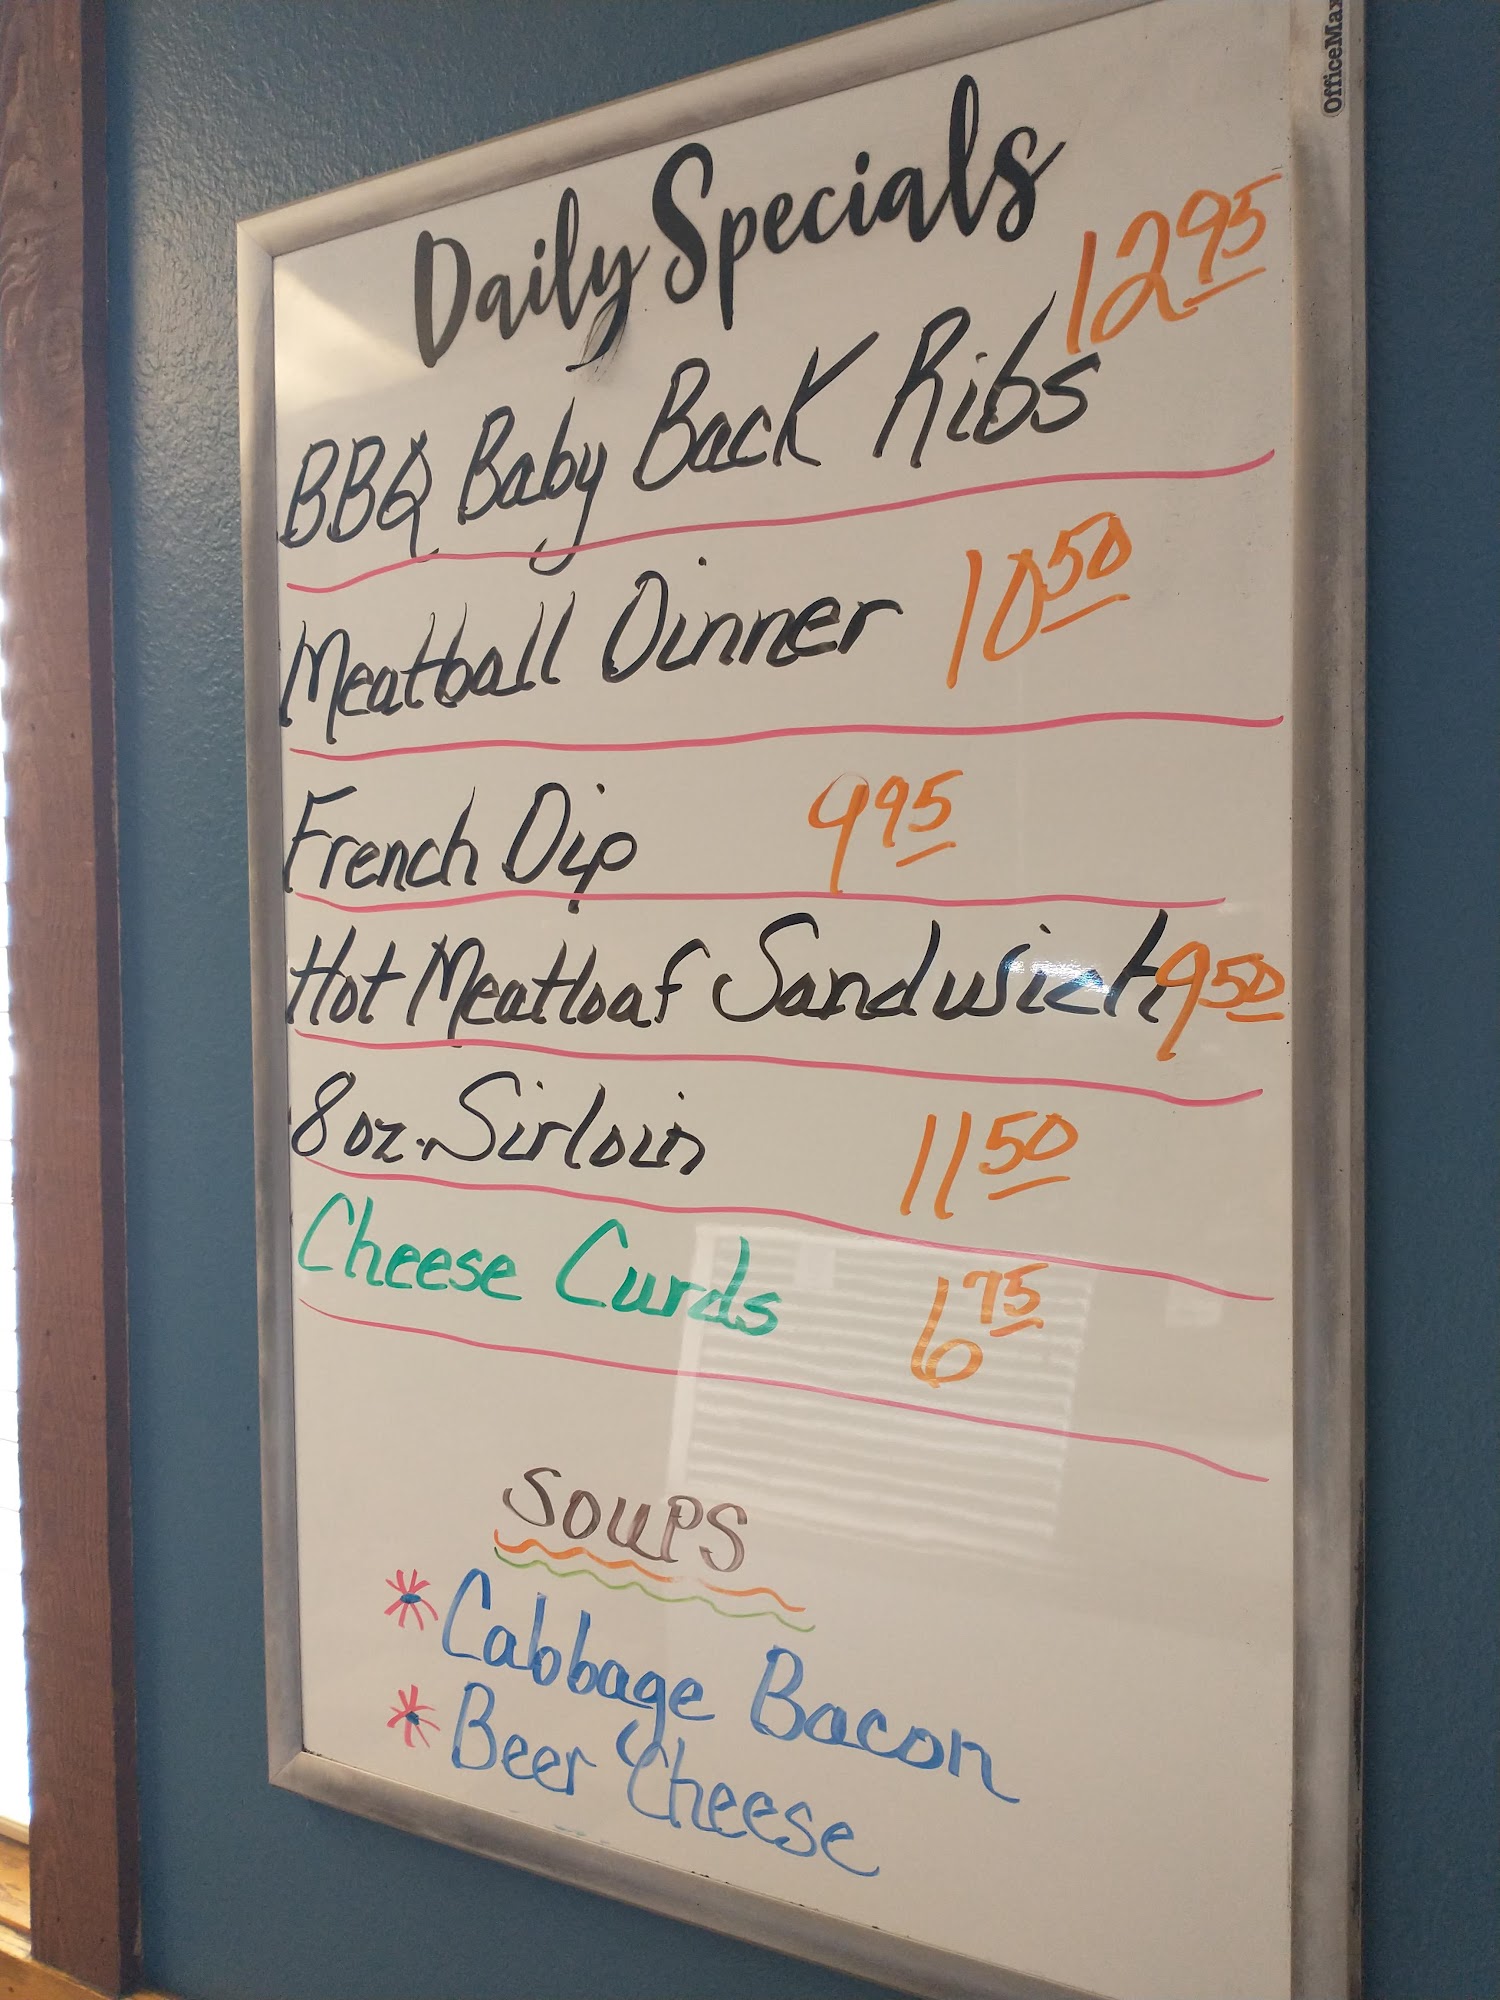 OfficeMax
Daily Specials
BBQ Baby Back Ribs 12 95
Meatball Dinner 10 50
French Dip 9 95
Hot Meatloaf Sandwich 9 50
8 oz. Sirloin 11 50
Cheese Curds 6 75
SOUPS
* Cabbage Bacon
* Beer Cheese